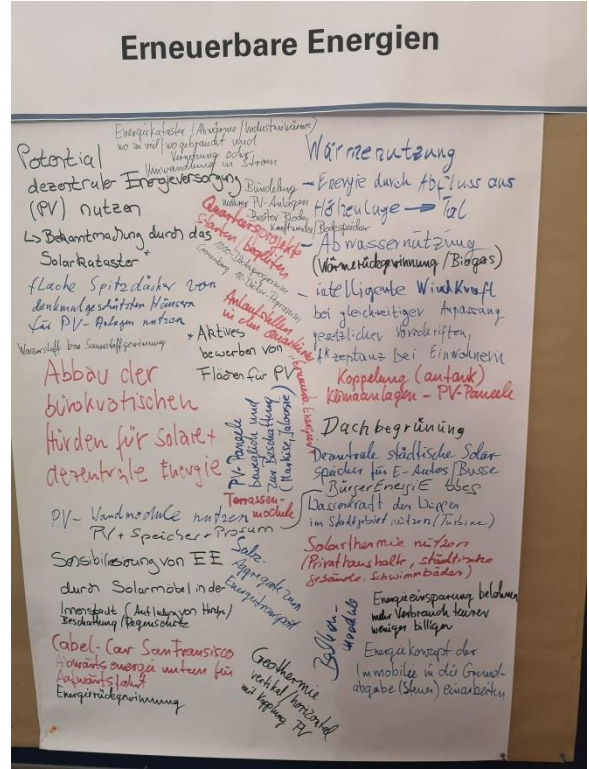 Erneuerbare Energien
Energiekataster (Abwärme/Industriewärme)
wo zu viel/wo gebraucht wird
Vernetzung oder
Umwandlung in Strom
Potential
dezentraler Energieversorgung
(PV) nutzen
↳ Bekanntmachung durch das
Solarkataster *
flache Spitzdächer von
denkmalgeschützten Häusern
für PV-Anlagen nutzen
Wasserstoff bzw Sauerstoffgewinnung
* Aktives
bewerben von
Flächen für PV
Abbau der
bürokratischen
Hürden für Solare +
dezentrale Energie
PV-Wandmodule nutzen
PV + Speicher + Prosum
Sensibilisierung von EE
durch Solarmöbel in der
Innenstadt (Aufladen von Handys)
Beschattung/Regenschutz
Cabel-Car San Fransisco
Abwärtsenergie nutzen für
Aufwärtsfahrt
Energierückgewinnung
Bündelung
mehrerer PV-Anlagen
Quartiersprojekte
starten/begleiten
1000-Dächerprogramm
Anlaufstellen
in den Quartieren
PV-Paneele
bewegliche und
zur Beschattung
(Markise, Jalousie)
Terrassen-
module
Salz-
Aggregate zum
Energietransport
Geothermie
vertikal/horizontal
mit Kopplung PV
Balkon-
module
Wärmenutzung
- Energie durch Abfluss aus
Höhenlage → Tal
- Abwassernutzung
(Wärmerückgewinnung/Biogas)
- intelligente Windkraft
bei gleichzeitiger Anpassung
gesetzlicher Vorschriften,
Akzeptanz bei Einwohnern
Koppelung (autark)
Klimaanlagen - PV-Paneele
Dachbegrünung
Dezentrale städtische Solar-
speicher für E-Autos/Busse
BürgerEnergiE
Wasserkraft der Wupper
im Stadtgebiet nutzen (Turbine)
Solarthermie nutzen
(Privathaushalte, städtische
Gebäude, Schwimmbäder)
Energieeinsparung belohnen
mehr Verbrauch teurer
weniger billiger
Energiekonzept der
Immobilie in die Grund-
abgabe (Steuer) einarbeiten